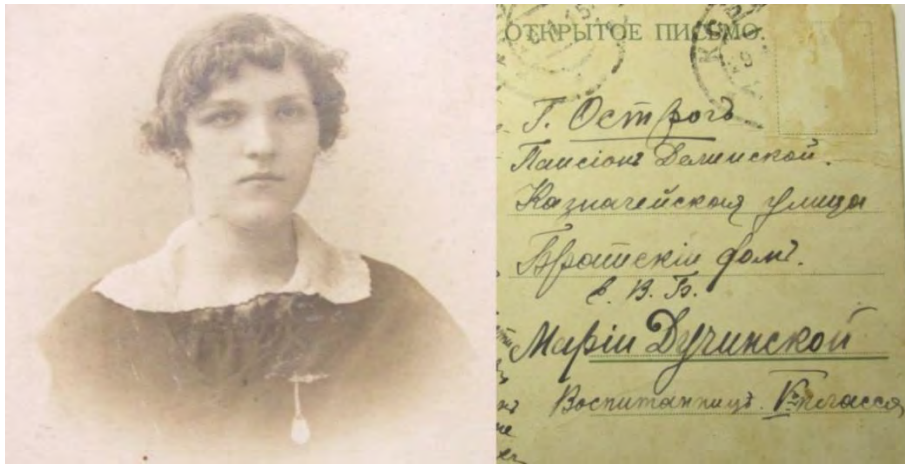 ОТКРЫТОЕ ПИСЬМО.
Г. Острогъ
Пансіонъ Делинской.
Казначейская улица
Братскій домъ.
Е. В. Б.
Маріи Дучинской
Воспитанницѣ V класса